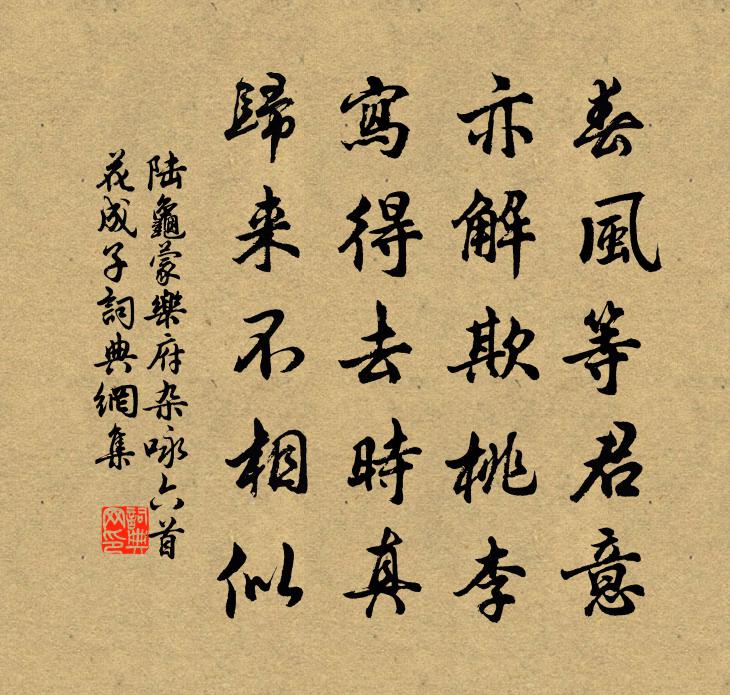 春風等君意
亦解欺桃李
寫得去時真
歸来不相似
陆龜蒙樂府杂咏六首
花成子詞典網集
詞典网印